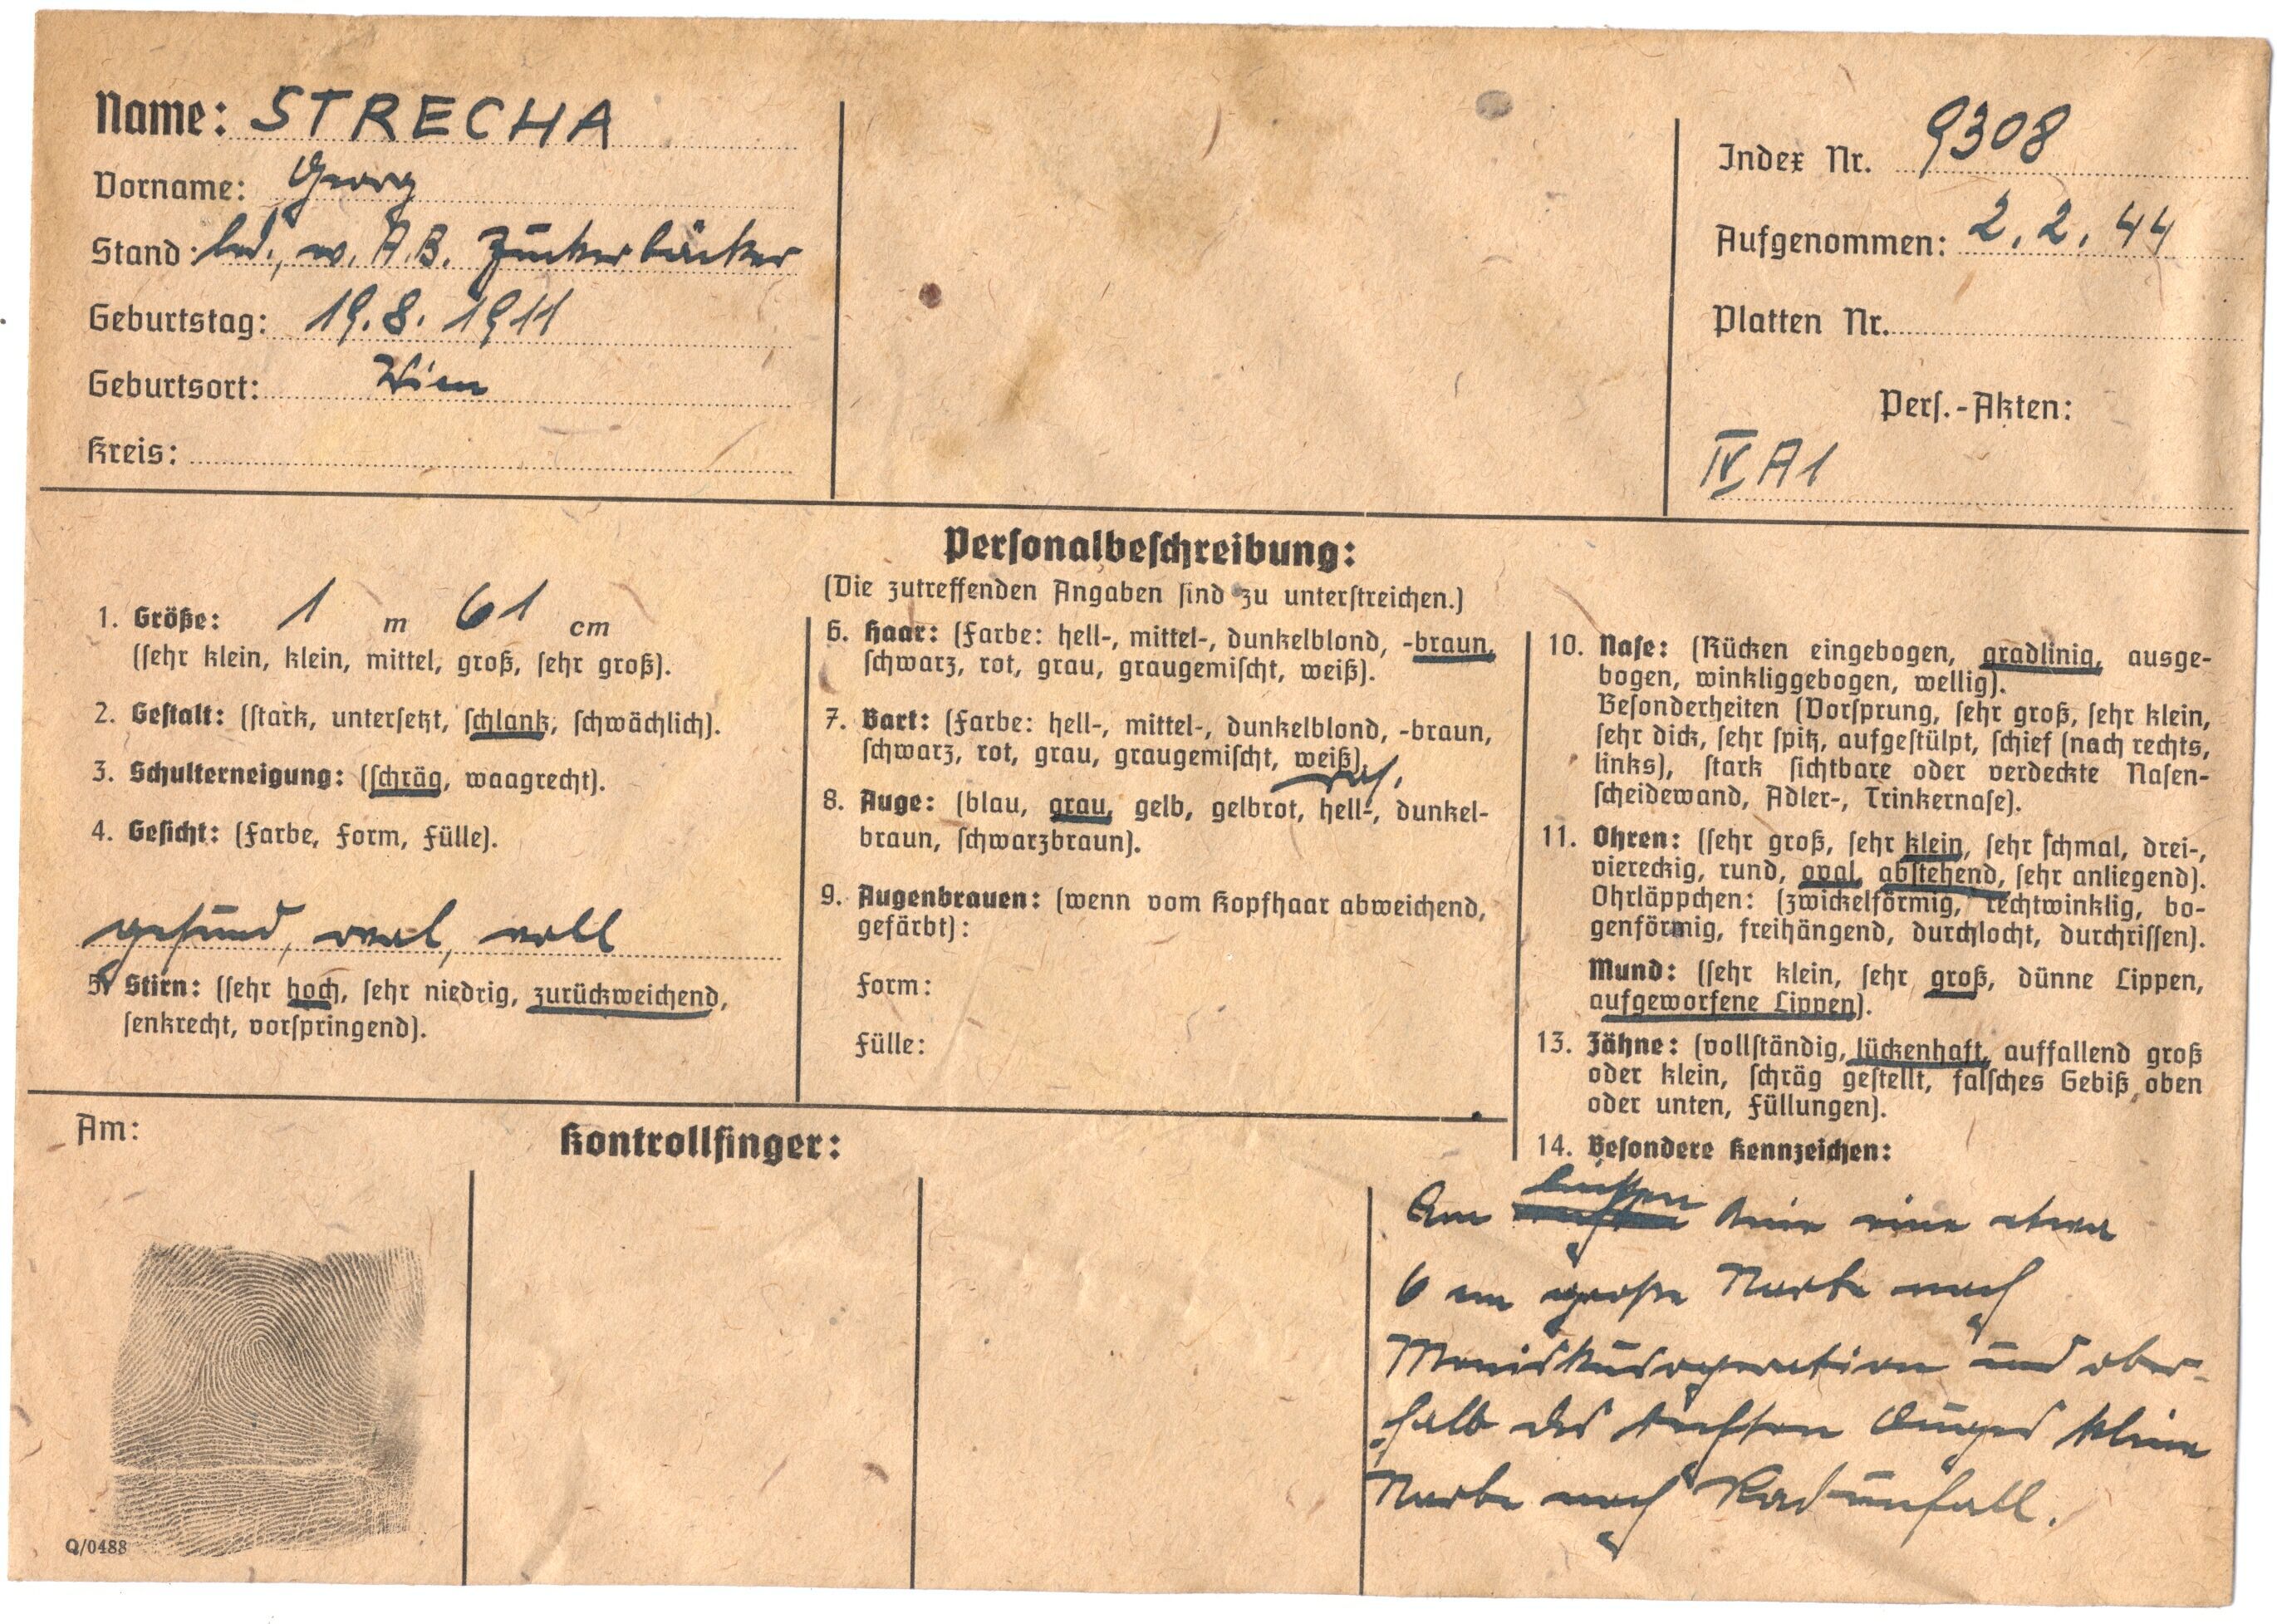 Name: STRECHA
Vorname: Georg
Stand: led., ev. A.B. Zuckerbäcker
Geburtstag: 19.8.1911
Geburtsort: Wien
Kreis:
Index Nr. 9308
Aufgenommen: 2.2.44
Platten Nr.
Pers.-Akten:
IV A1
Personalbeschreibung:
(Die zutreffenden Angaben sind zu unterstreichen.)
1. Größe: 1 m 61 cm
(sehr klein, klein, mittel, groß, sehr groß).
2. Gestalt: (stark, untersetzt, schlank, schwächlich).
3. Schulterneigung: (schräg, waagrecht).
4. Gesicht: (Farbe, Form, Fülle).
gesund, oval, voll
5. Stirn: (sehr hoch, sehr niedrig, zurückweichend,
senkrecht, vorspringend).
6. Haar: (Farbe: hell-, mittel-, dunkelblond, -braun,
schwarz, rot, grau, graugemischt, weiß).
7. Bart: (Farbe: hell-, mittel-, dunkelblond, -braun,
schwarz, rot, grau, graugemischt, weiß).
8. Auge: (blau, grau, gelb, gelbrot, hell-, dunkel-
braun, schwarzbraun).
9. Augenbrauen: (wenn vom Kopfhaar abweichend,
gefärbt):
Form:
Fülle:
10. Nase: (Rücken eingebogen, gradlinig, ausge-
bogen, winkliggebogen, wellig).
Besonderheiten (Vorsprung, sehr groß, sehr klein,
sehr dick, sehr spitz, aufgestülpt, schief (nach rechts,
links), stark sichtbare oder verdeckte Nasen-
scheidewand, Adler-, Trinkernase).
11. Ohren: (sehr groß, sehr klein, sehr schmal, drei-,
viereckig, rund, oval, abstehend, sehr anliegend).
Ohrläppchen: (zwickelförmig, rechtwinklig, bo-
genförmig, freihängend, durchlocht, durchrissen).
Mund: (sehr klein, sehr groß, dünne Lippen,
aufgeworfene Lippen).
13. Zähne: (vollständig, lückenhaft, auffallend groß
oder klein, schräg gestellt, falsches Gebiß, oben
oder unten, Füllungen).
14. Besondere Kennzeichen:
linken
Am Knie eine etwa
6 cm große Narbe nach
Meniskusoperation und ober-
halb des rechten Auges kleine
Narbe nach Radunfall.
Am:
Kontrollfinger:
Q/0488